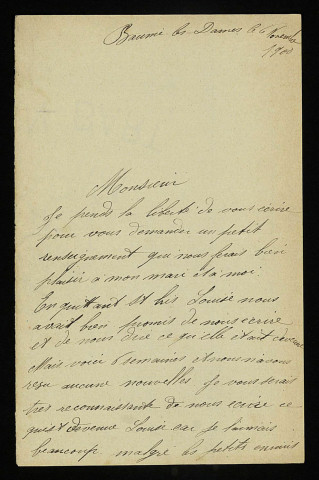 Baume les-Dames le 6 Novembre
1900
Monsieur
Je prends la liberté de vous écrire
pour vous demander un petit
renseignement qui nous ferais bien
plaisir a mon mari et a moi.
En quittant St his Louise nous
avait bien promis de nous ecrire
et de nous dire ce qu'elle etait devenue
Mais voici 6 semaines et nous n'avons
reçu aucune nouvelles Je vous serais
tres reconnaissante de nous ecrire ce
qu'est devenue Louise car je l'aimais
beaucoup malgré les petits ennuis